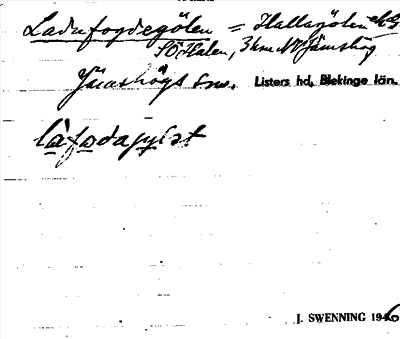 Ladufogdegölen = Hallagölen ek. bl.
SÖ Halen, 3 km NV Jämshög
Jämshögs sn. Listers hd, Blekinge län.
làfodajylət
J. SWENNING 1946